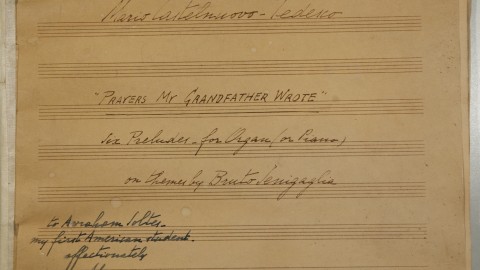 Mario Castelnuovo-Tedesco
"PRAYERS MY GRANDFATHER WROTE"
Six Preludes - for Organ (or Piano)
on themes by Bruto Senigaglia
to Avraham Soltes -
my first American student -
affectionately